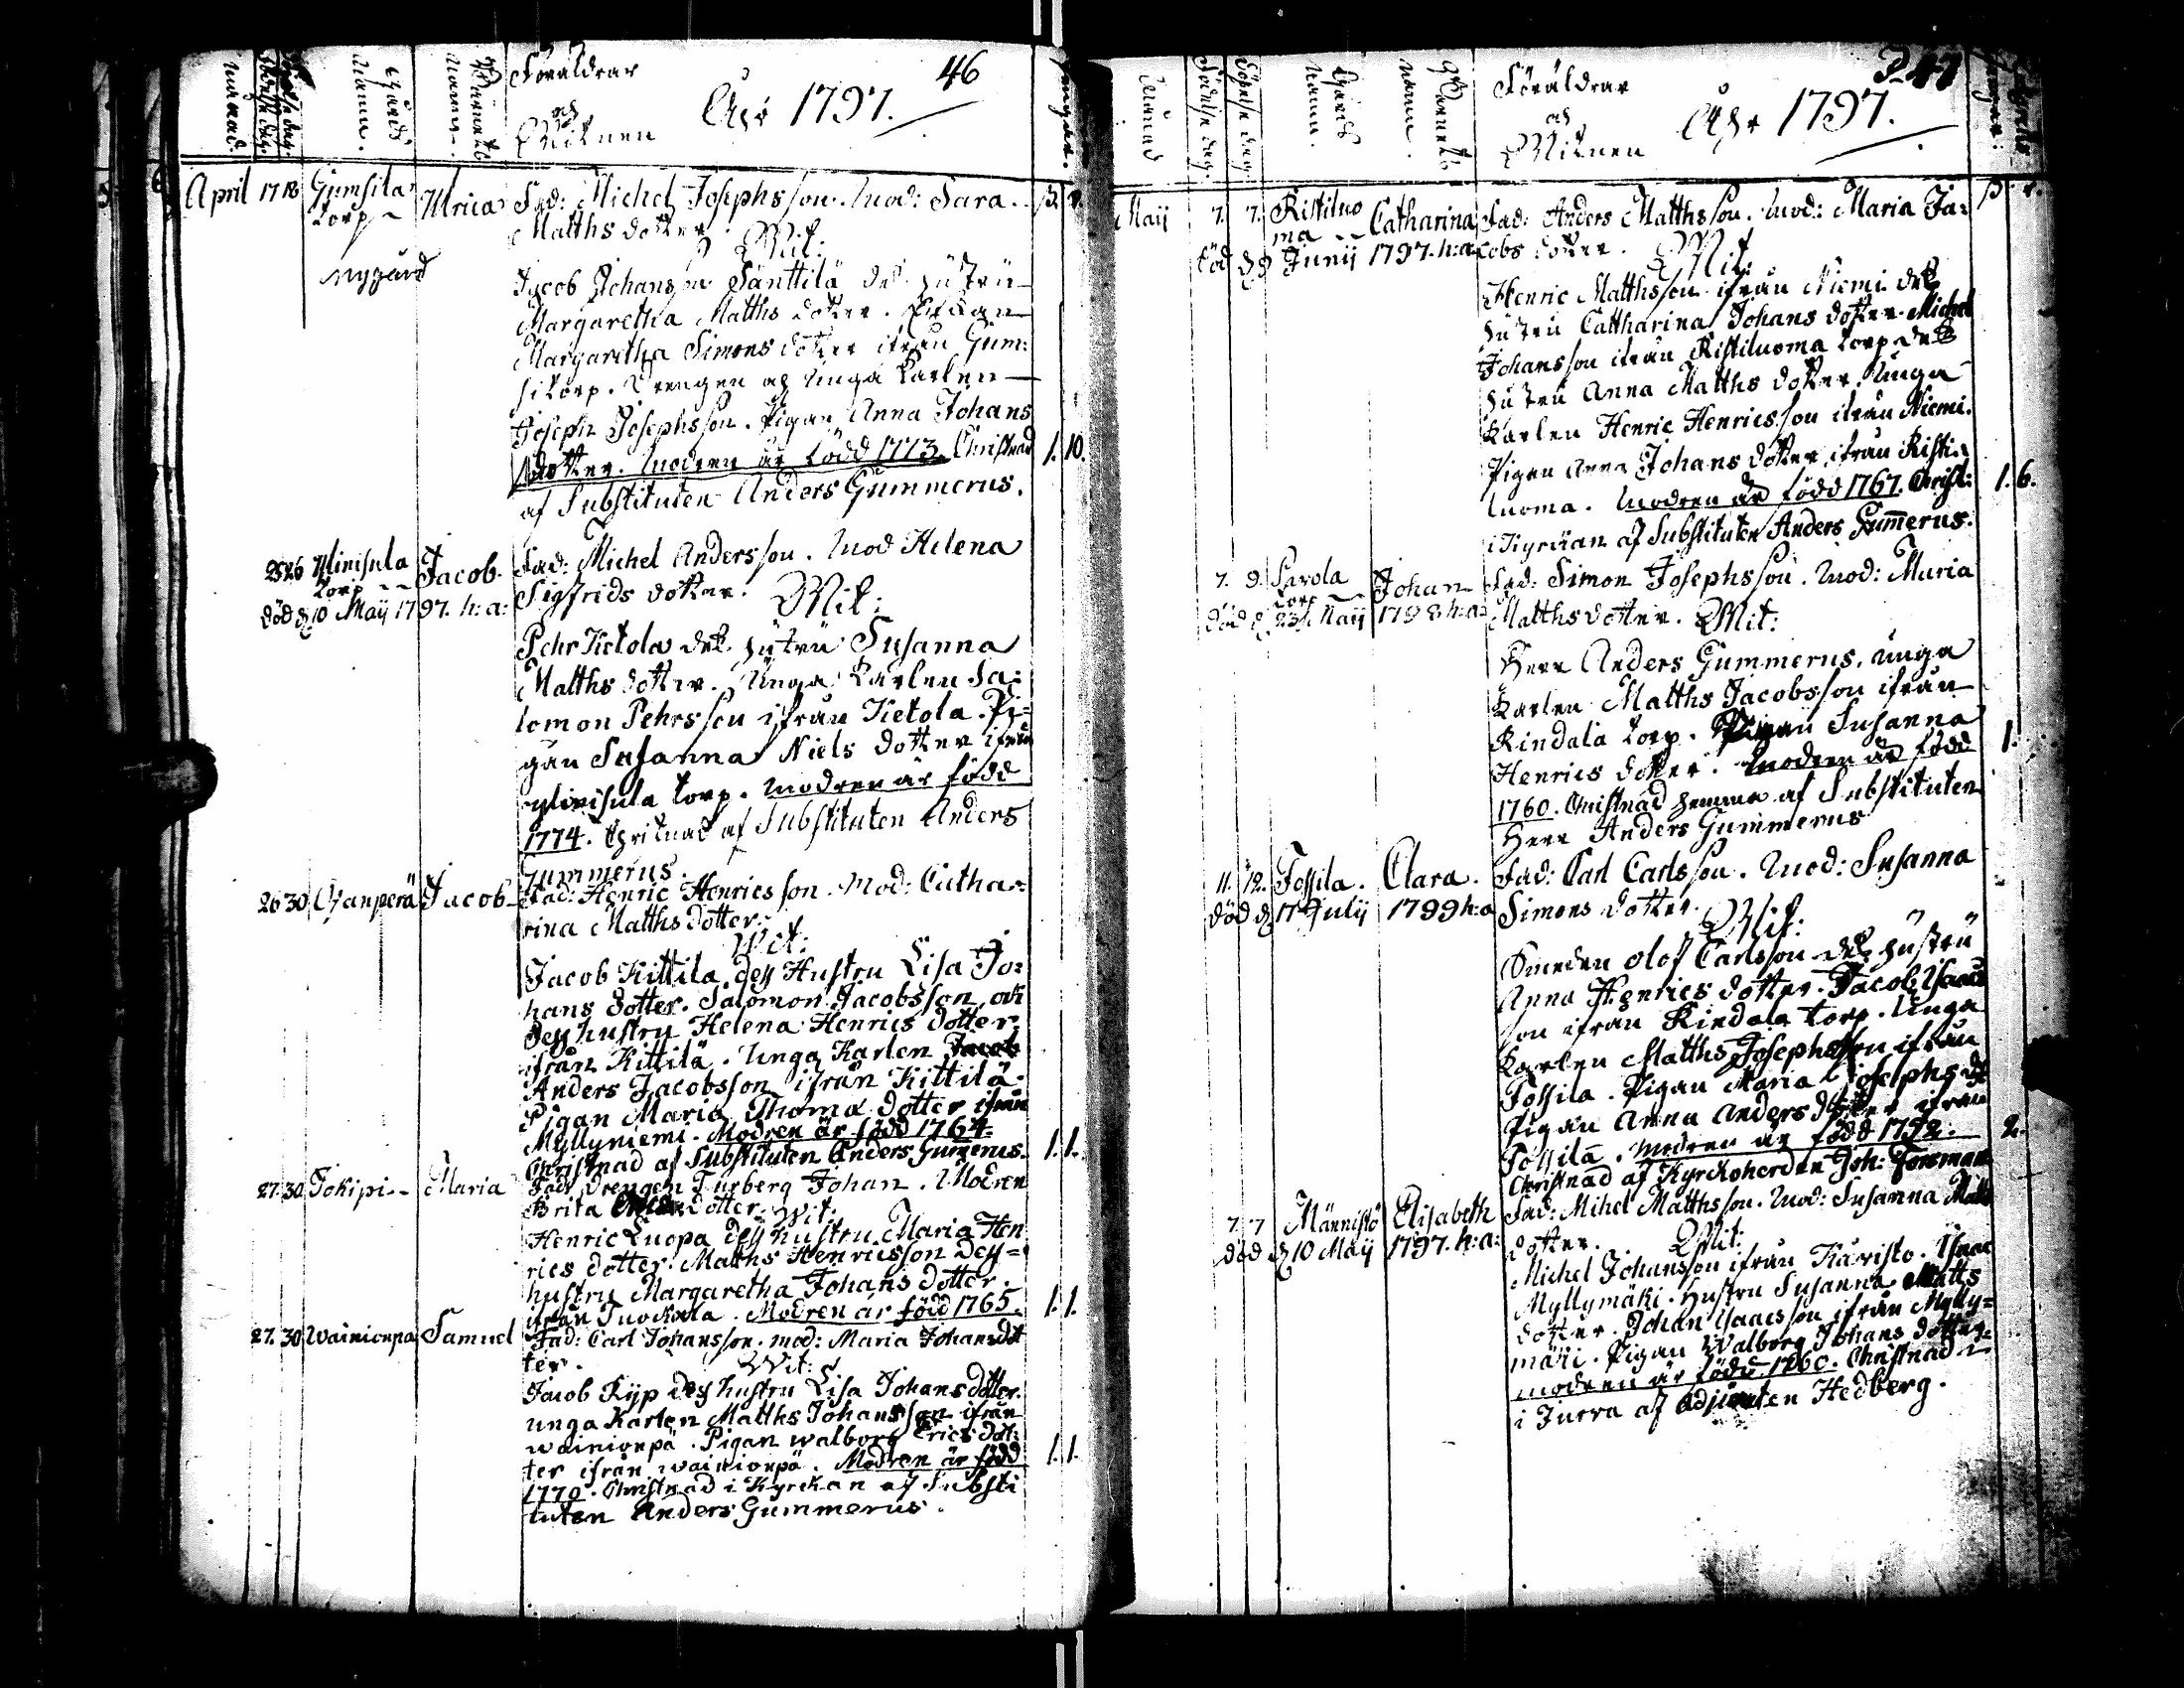 Månad.
Födelse dag.
Döpelse dag.
Gårds Namn.
Barnets Namn.
Föräldrar
och
Witnen
Åhr 1797.
46
April 17 18 Gumsila Torp Ulrica Fad: Michel Josephsson. Mod: Sara
Matths dotter. Wit:
nygård
Jacob Johansson Santtilä dess hustru
Margaretha Matths dotter. Pigan
Margaretha Simons dotter ifrån Gum:
si torp. Drengen och Unga Karlen
Joseph Josephsson. Pigan Anna Johans
dotter. Modren är född 1773. Christnad 1. 10.
af Substituten Anders Gummerus.
25 26 Ylinisula Torp Jacob. Fad: Michel Andersson. Mod Helena
Sigfrids dotter. Wit:
död d. 10 Maij 1797. h: a:
Pehr Ketola dess hustru Susanna
Matths dotter. Unga Karlen Sa:
lomon Pehrsson ifrån Ketola. Pi=
gan Susanna Niels dotter ifrån
Ylinisula torp. Modren är född
1774. Christnad af Substituten Anders
Gummerus.
26 30 Ojanperä Jacob Fad: Henric Henricsson. Mod: Catha=
rina Matths dotter.
Wit:
Jacob Kittilä dess Hustru Lisa Jo:
hans dotter. Salomon Jacobsson och
dess hustru Helena Henrics dotter
ifrån Kittilä. Unga Karlen
Anders Jacobsson ifrån Kittilä.
Pigan Maria Thoma dotter ifrån
Myllyniemi. Modren är född 1764.
Christnad af Substituten Anders Gummerus. 1. 1.
27 30 Jokipi Maria Fad: Drengen Turberg Johan. Modren
Brita dotter. Wit:
Henric Luopa dess hustru Maria Hen
rics dotter. Matths Henricsson dess=
hustru Margaretha Johans dotter.
ifrån Tuockola. Modren är född 1765. 1. 1.
27. 30 Wainionpä Samuel Fad: Carl Johansson. mod: Maria Johansdot
ter. Wit:
Jacob Kyp dess hustru Lisa Johans dotter.
unga Karlen Matths Johansson ifrån
wainionpä. Pigan walborg Erics dot:
ter ifrån wainionpä. Modren är född 1. 1.
1770. Christnad i Kyrckan af Substi
tuten Anders Gummerus.
Månad
Födelse dag
Döpelse dag
Gårds namn.
Barnets namn.
Föräldrar
och
Witnen
Åhr 1797.
47
Maij 7. 7. Ristiluo Catharina Fad: Anders Matthsson. Mod: Maria Ja:
ma cobs dotter. Wit:
död d. 8 Junij 1797. h: a:
Henric Matthsson ifrån Niemi dess
hustru Cattharina Johans dotter. Michel
Johansson ifrån Ristiluoma torp dess
hustru Anna Matths dotter. Unga
Karlen Henric Henricsson ifrån Niemi.
Pigan Anna Johans dotter ifrån Risti
luoma. Modren är född 1767. Christ: 1. 6.
i Kyrckan af Substituten Anders Gummerus.
7. 9. Savola Torp Johan Fad: Simon Josephsson. Mod: Maria
död d. 23 Maij 1798 h: a: Matthsdotter. Wit:
Herr Anders Gummerus, unga
Karlen Matths Jacobsson ifrån
Rindala torp. Pigan Susanna
Henrics dotter. Modren är född 1.
1760. Christnad hemma af Substituten
Herr Anders Gummerus
11. 12. Fossila. Clara. Fad: Carl Carlsson. Mod: Susanna
död d. 17 Julij 1799 h: a Simons dotter. Wit:
Smeden Olof Carlsson dess hustru
Anna Henrics dotter. Jacob Isaacs
son ifrån Rindala torp. Unga
Karlen Matths Josephsson ifrån
Fossila. Pigan Maria Josephs dot
Pigan Anna Anders dotter ifrån
Fossila. Modren är född 1752. 2.
Christnad af Kyrckoherden Joh: Forsman
7. 7 Männistö Elisabeth Fad: Mihel Matthsson. Mod: Susanna Matts
död d. 10 Maij 1797. h: a: dotter. Wit:
Michel Johansson ifrån Karisto. Isaac
Myllymäki. Hustru Susanna Matts
dotter. Johan Isaacsson ifrån Mylly=
mäki. Pigan Walborg Johans dotter.
modren är född 1760. Christnad
i Jurva af Adjuncten Hedberg.